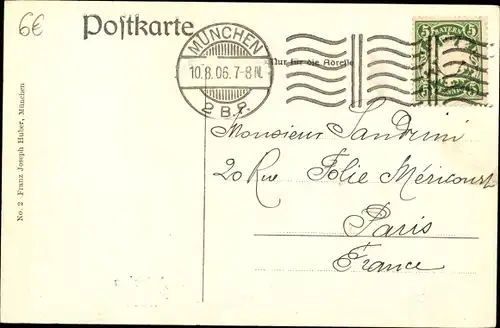 6€
Postkarte
MÜNCHEN
10.8.06.7-8 N.
2 B.P.
Nur für die Adresse
5 5
BAYERN
5 5
Monsieur Sandrini
20 Rue Folie Méricourt
Paris
France
No. 2 Franz Joseph Huber, München